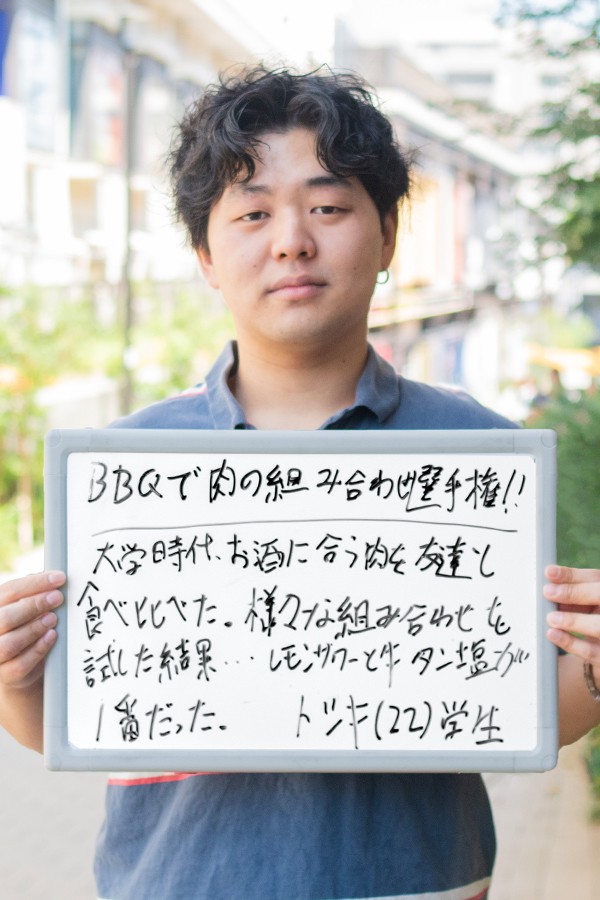 BBQで肉の組み合わせ選手権!!
大学時代、お酒に合う肉を友達と
食べ比べた。様々な組み合わせを
試した結果… レモンサワーと牛タン塩が
1番だった。 トツキ(22)学生